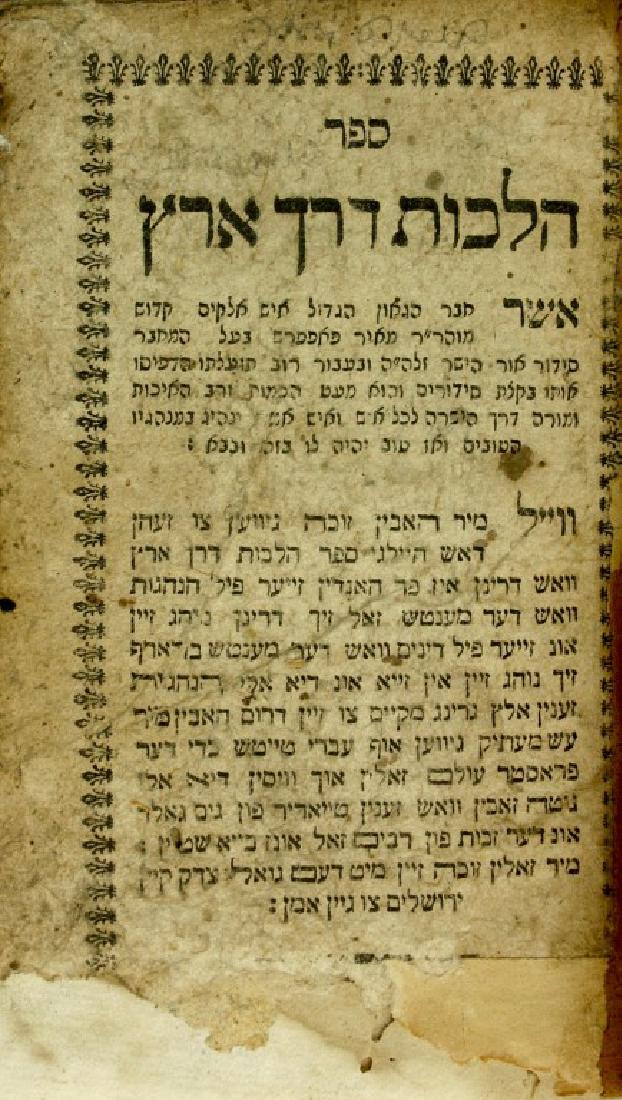 ספר
הלכות דרך ארץ
אשר חבר הגאון הגדול איש אלקים קדוש
מוהר״ר מאיר פאפפרש בעל המחבר
סידור אור הישר זלה״ה ובעבור רוב תועלתו הדפיסו
אותו בקלת סידורים והוא מעט הכמות ורב האיכות
ומורה דרך הישרה לכל איש ואיש אשר ינהיג במנהגיו
הטובים ואז טוב יהיה לו בזה ובבא :
ווייל מיר האבין זוכה גיווען צו זעהן
דאש הייליגי ספר הלכות דרך ארץ
וואש דרינן איז פר האנדין זייער פיל הנהגות
וואש דער מענטש זאל זיך דרינן נוהג זיין
אונ זייער פיל דינים וואש דער מענטש בידארף
זיך נוהג זיין אין זייא אונ דיא אלי הנהגות
זענין אלץ גרינג מקיים צו זיין דרום האבין מיר
עש מעתיק גיווען אויף עברי טייטש כדי דער
פראסטר עולם זאלין אויך וויסין דיא אלי
גוטה זאכין וואש זענין טייאריר פון גים גאלד
אונ דער זכות פון רביבם זאל אונז בייא שטיין :
מיר זאלין זוכה זיין מיט דעם גואל צדק קיין
ירושלים צו גיין אמן :